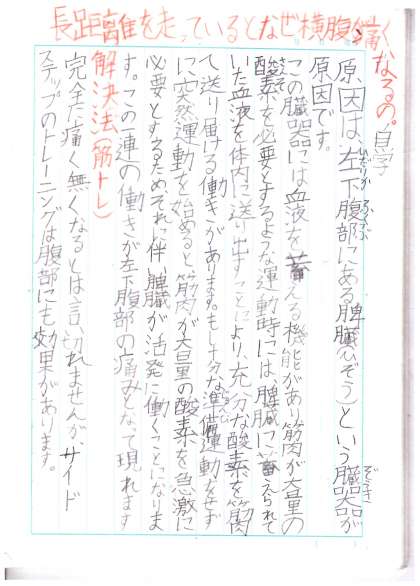 長距離を走っているとなぜ横腹が痛く
なるの。自学
原因は左下腹部にある脾臓(ひぞう)という臓器が
原因です。
この臓器には血液を蓄える機能があり筋肉が大量の
酸素を必要とするような運動時には、脾臓に蓄えられて
いた血液を体内に送り出すことにより、充分な酸素を筋肉
て送り届ける働きがあります。もし十分な準備運動をせず
に突然運動を始めると筋肉が大量の酸素を急激に
必要とするためそれに伴い脾臓が活発に働くことになりま
す。この一連の働きが左下腹部の痛みとなって現れます
解決法(筋トレ)
完全に痛く無くなるとは言い切れませんが、サイド
ステップのトレーニングは腹部にも効果があります。